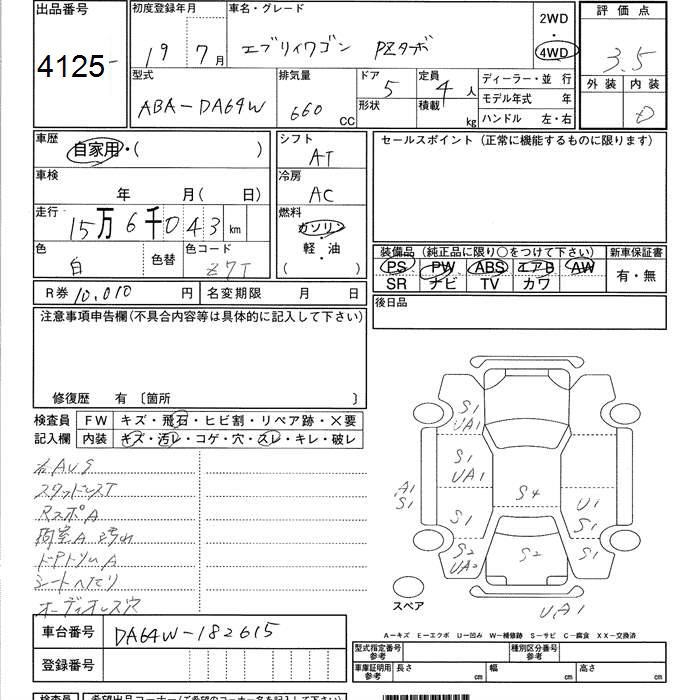 出品番号
4125
初度登録年月
19年 7月
車名・グレード
エブリィワゴン PZターボ
2WD
・
4WD
評価点
3.5
外装 内装
D
型式
ABA-DA64W
排気量
660 CC
ドア 5
形状
定員 4 人
積載 kg
ディーラー・並行
モデル年式 年
ハンドル 左・右
車歴
自家用・( )
車検
年 月(日)
走行
15万6千043 km
色
白
色替
色コード
Z7T
シフト
AT
冷房
AC
燃料
ガソリン・
軽・油
( )
セールスポイント(正常に機能するものに限ります)
装備品(純正品に限り○をつけて下さい)
PS PW ABS エアB AW
SR ナビ TV カワ
新車保証書
有・無
R券 10,010 円
名変期限 月 日
後日品
注意事項申告欄(不具合内容等は具体的に記入して下さい)
修復歴 有 〔箇所 〕
検査員
記入欄
FW キズ・飛石・ヒビ割・リペア跡・×要
内装 キズ・汚レ・コゲ・穴・スレ・キレ・破レ
スタッドレスT
RスポA
ドアトリムA
シートヘタリ
オーディオレス穴
S1
UA1
S1
UA1
A1
S1
S1
S2
UA2
S4
S2
U1
S1
UA1
スペア
A−キズ E−エクボ U−凹み W−補修跡 S−サビ C−腐食 XX−交換済
車台番号 DA64W-182615
登録番号
型式指定番号
参考
種別区分番号
参考
車庫証明用
参考
長さ cm
幅 cm
高さ cm
検査員
希望出品コーナー(ご希望のコーナー名をご記入下さい)